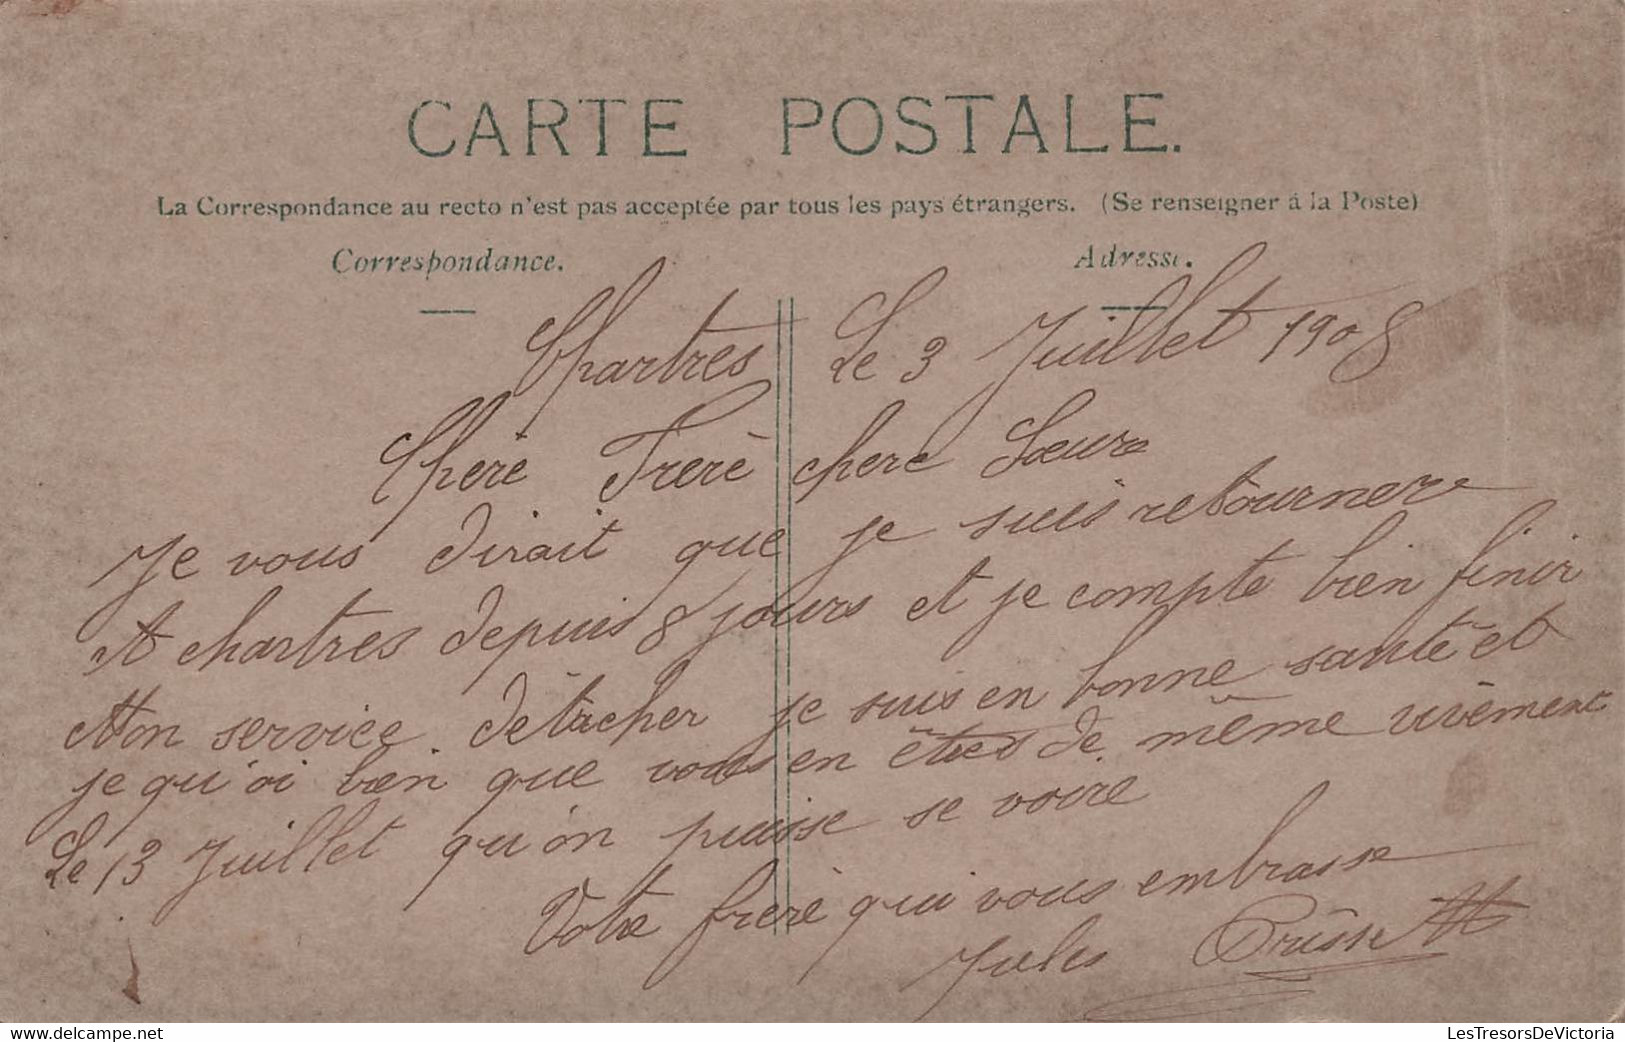 CARTE POSTALE.
La Correspondance au recto n'est pas acceptée par tous les pays étrangers. (Se renseigner à la Poste)
Correspondance. Adresse.
Chartres Le 3 Juillet 1908
Cherè Frerè chere Sœure
Je vous dirait que je suis retournere
A chartres depuis 8 jours et je compte bien finir
Mon service détacher je suis en bonne santé et
je qu'oi bien que vous en êtres de même vivèment
Le 13 Juillet qu'on puisse se voire
Votre frerè qui vous embrasse
Jules
https://www.delcampe.net
LesTresorsDeVictoria